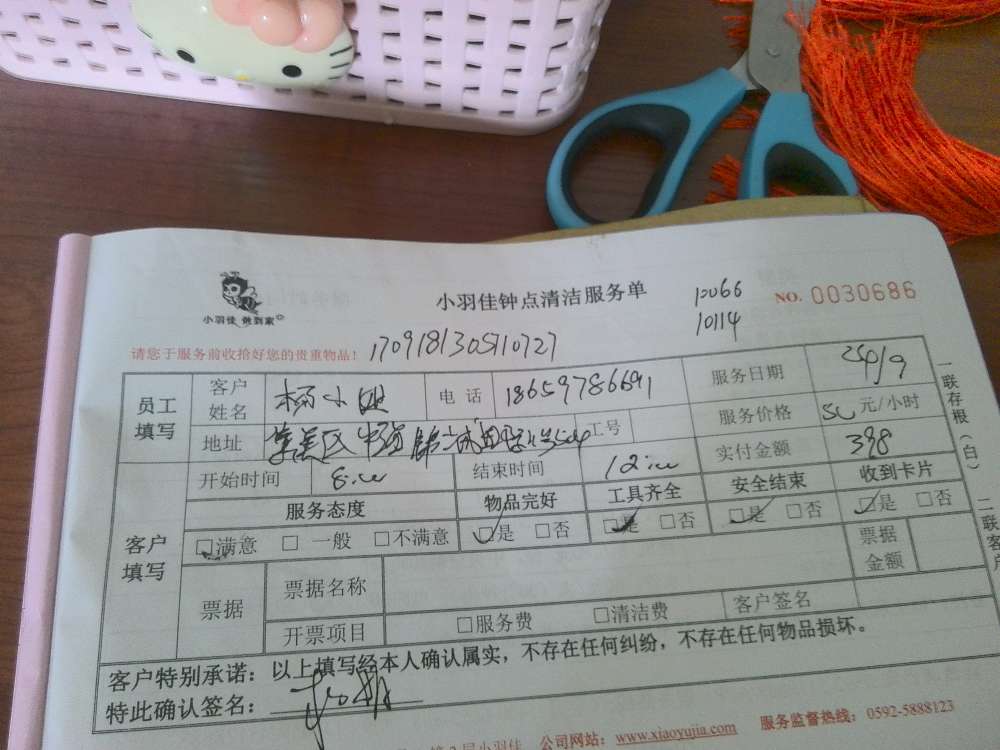 小羽佳 做到家
小羽佳钟点清洁服务单
10066
10114
NO. 0030686
请您于服务前收拾好您的贵重物品!
1709181305110727
员工填写
客户姓名
杨小
电话
18659786691
服务日期
地址
工号
服务价格
元/小时
实付金额
398
客户填写
开始时间
结束时间
服务态度
物品完好
工具齐全
安全结束
收到卡片
□满意 □一般 □不满意
□是 □否
□是 □否
□是 □否
□是 □否
票据
票据名称
票据金额
开票项目
□服务费 □清洁费
客户签名
客户特别承诺:以上填写经本人确认属实,不存在任何纠纷,不存在任何物品损坏。
特此确认签名:
小羽佳 公司网站:www.xiaoyujia.com 服务监督热线:0592-5888123
一联存根(白)
二联客户